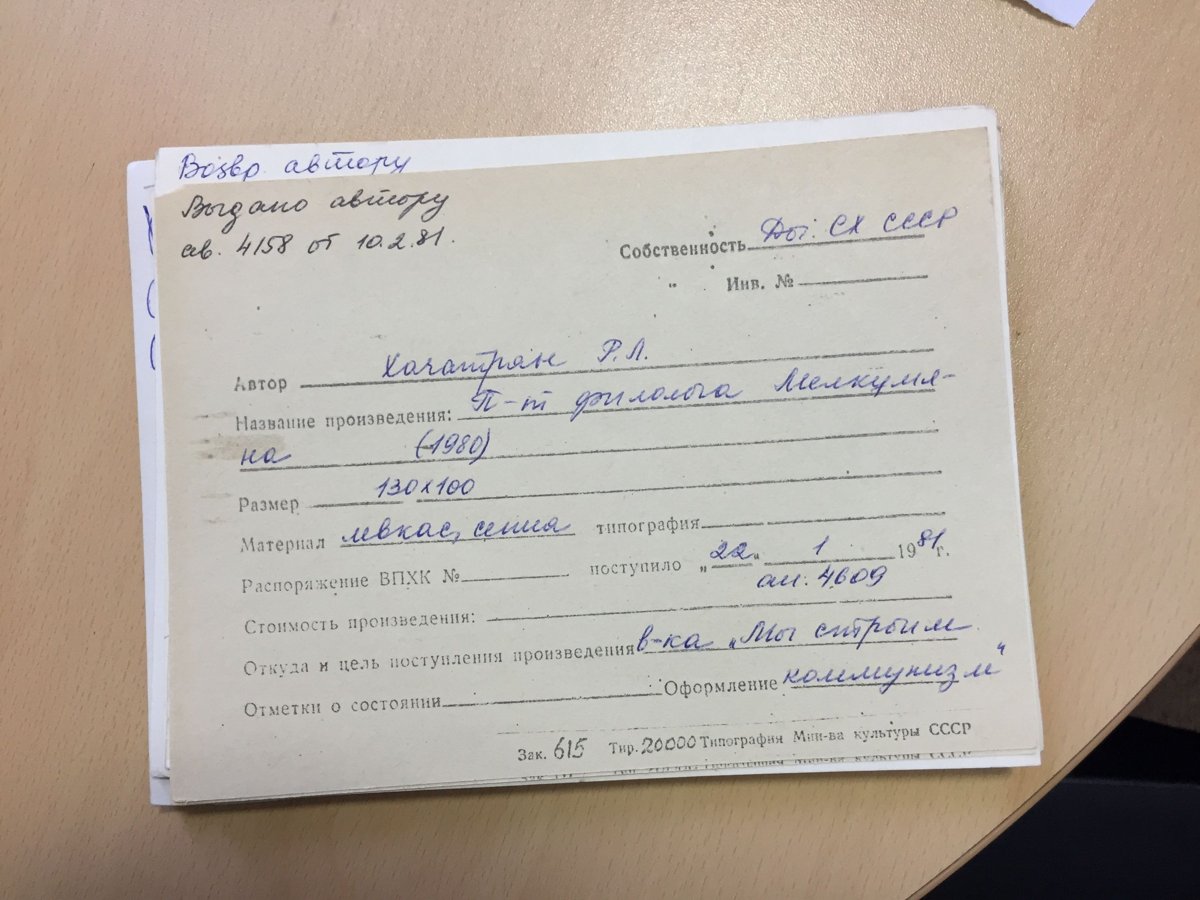 Возвр. автору
Выдано автору
ав. 4158 от 10.2.81.
Собственность СХ СССР
" Инв. №
Автор Хачатрян Р.Л.
Название произведения: П-т филолога Мелкумя-
на (1980)
Размер 130х100
Материал левкас, сепия типография
Распоряжение ВПХК № поступило „22„ 1 1981г.
Стоимость произведения: ап. 4609
Откуда и цель поступления произведения в-ка „Мы строим
Отметки о состоянии Оформление коммунизм"
Зак. 615 Тир. 20000 Типография Мин-ва культуры СССР
Мин-ва культуры СССР